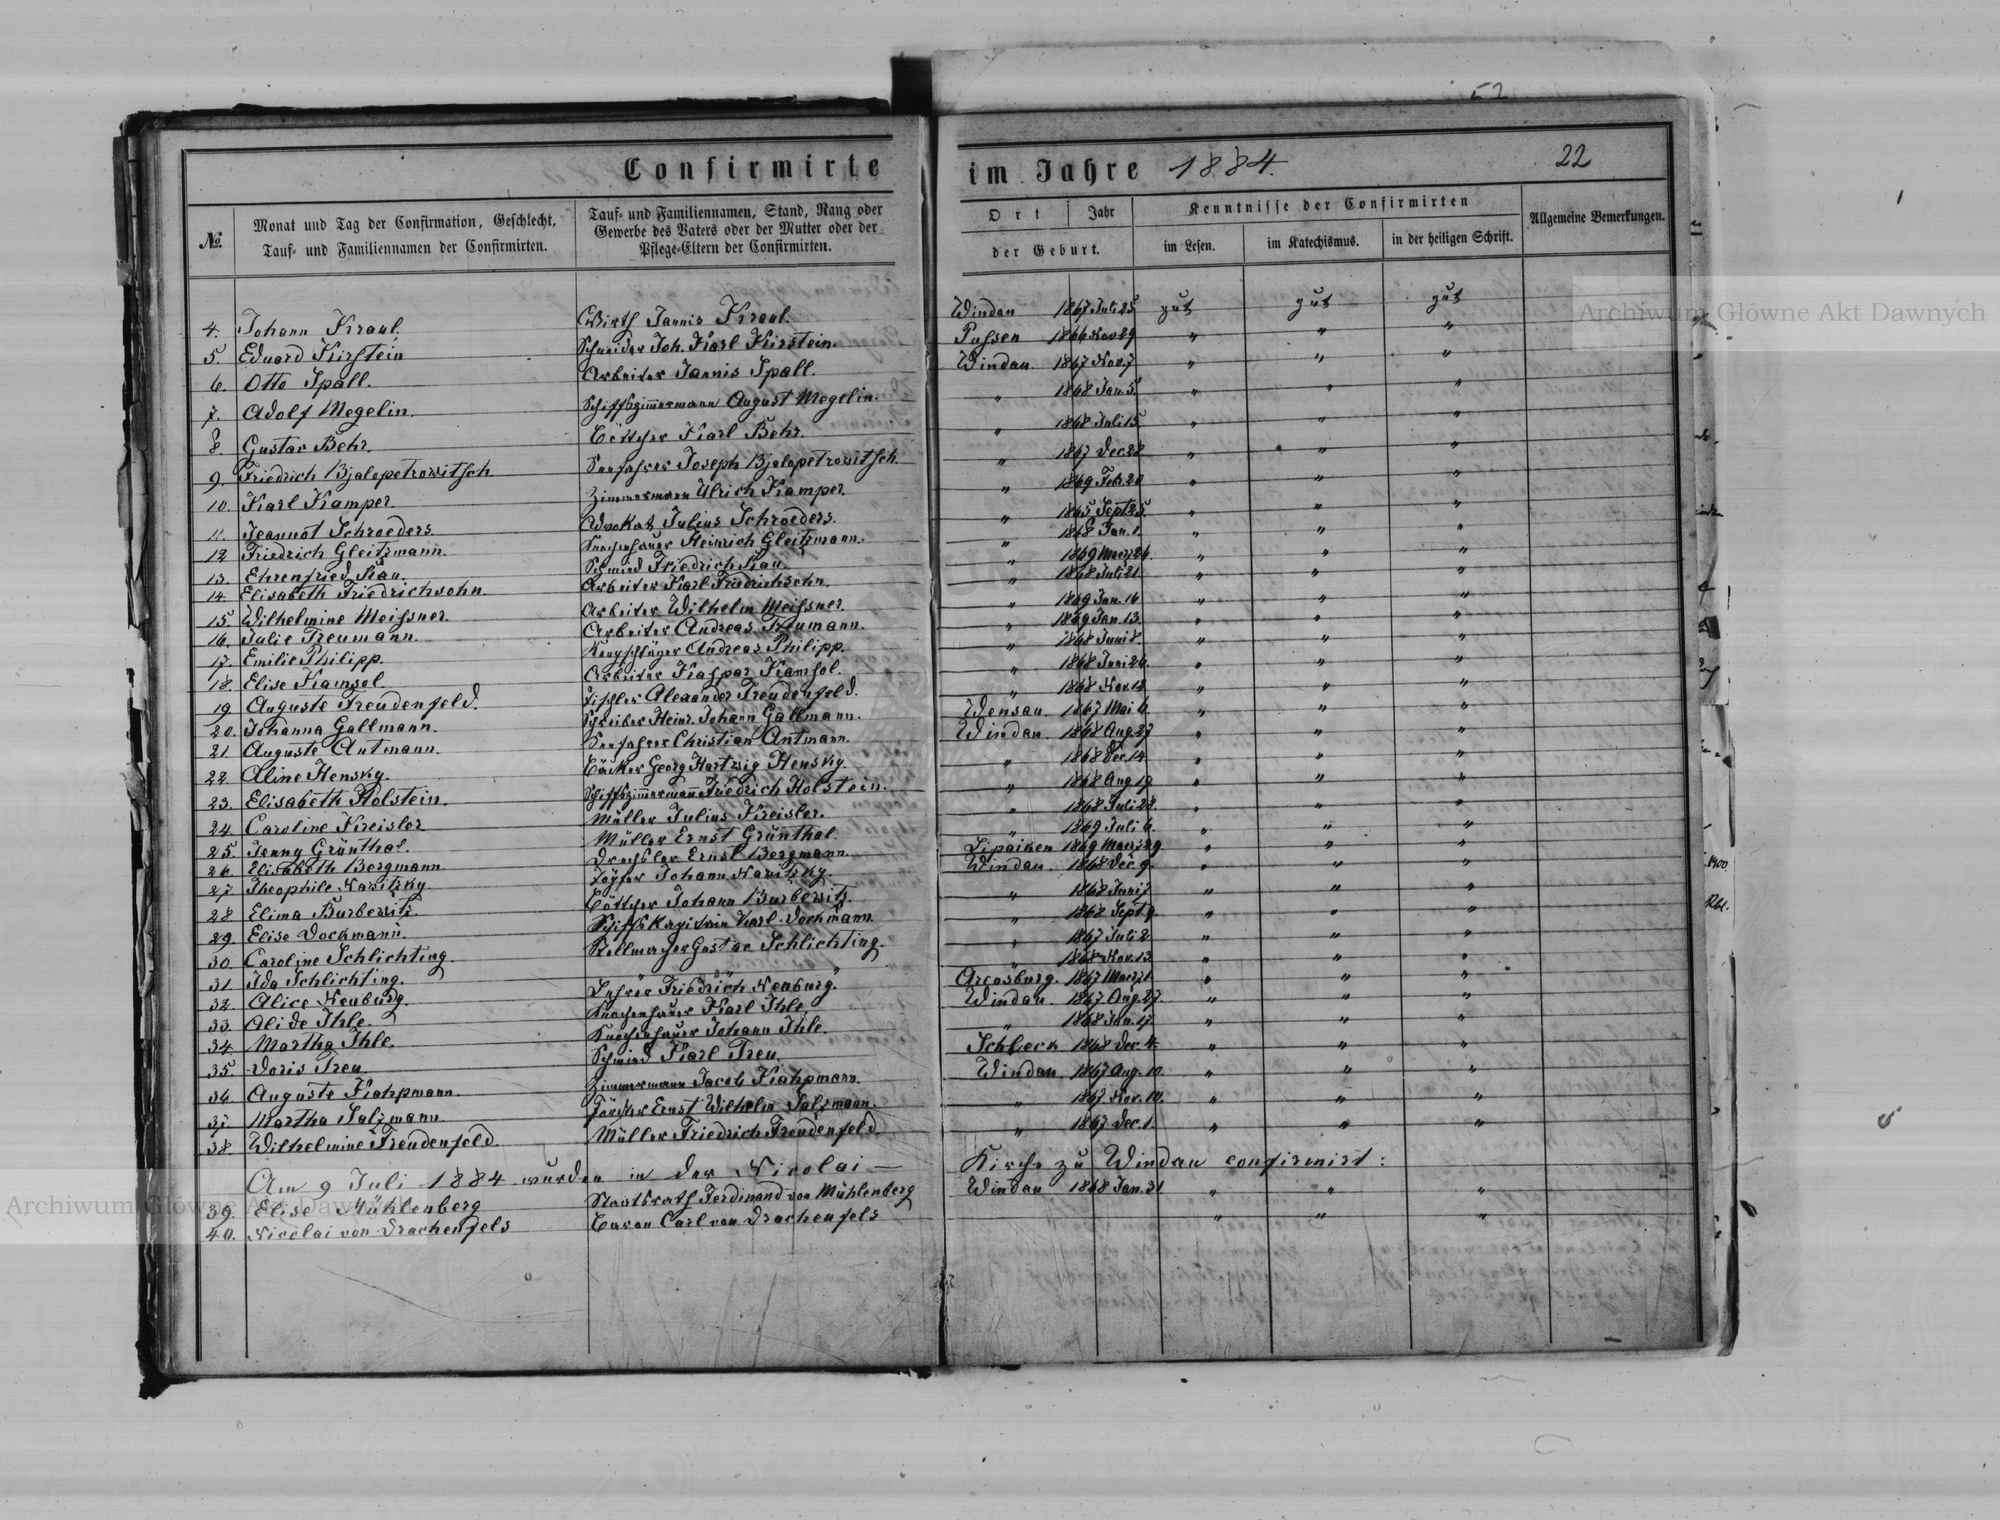 52
Confirmirte im Jahre 1884. 22
№ Monat und Tag der Confirmation, Geschlecht, Tauf- und Familiennamen der Confirmirten. Tauf- und Familiennamen, Stand, Rang oder Gewerbe des Vaters oder der Mutter oder der Pflege-Eltern der Confirmirten. Ort Jahr der Geburt. Kenntnisse der Confirmirten im Lesen. im Katechismus. in der heiligen Schrift. Allgemeine Bemerkungen.
4. Johann Kraul. Wirth Jannis Kraul. Windau 1867 Juli 25 gut gut gut
5. Eduard Kirstein Schneider Joh. Karl Kirstein. Pussen 1866 Nov 29 " " "
6. Otto Spall. Arbeiter Jannis Spall. Windau 1867 Nov. 7 " " "
7. Adolf Megelin. Schiffszimmermann August Megelin. " 1868 Jan. 5 " " "
8. Gustav Behr. Böttcher Karl Behr. " 1868 Juli 15 " " "
9. Friedrich Bjalopetrowitsch Seefahrer Joseph Bjalopetrowitsch. " 1867 Dec 28 " " "
10. Karl Kamper. Zimmermann Ulrich Kamper. " 1869 Febr. 20 " " "
11. Jeannot Schroeders. Advokat Julius Schroeders. " 1865 Sept 25. " " "
12 Friedrich Gleitzmann. Knochenhauer Heinrich Gleitzmann. " 1868 Jan. 1. " " "
13. Ehrenfried Kau. Schmied Friedrich Kau. " 1869 Maerz 26. " " "
14. Elisabeth Friedrichsohn. Arbeiter Karl Friedrichsohn. " 1868 Juli 21. " " "
15 Wilhelmine Meissner. Arbeiter Wilhelm Meissner. " 1869 Jan. 16 " " "
16. Julie Treumann. Arbeiter Andreas Treumann. " 1869 Jan. 13. " " "
17. Emilie Philipp. Andreas Philipp. " 1868 Juni 8. " " "
18. Elise Kamsol Arbeiter Kaspar Kamsol. " 1868 Juni 26. " " "
19 Auguste Freudenfeld. Tischler Alexander Freudenfeld. " 1868 Nov. 18. " " "
20. Johanna Gallmann. Schreiber Heinr. Johann Gallmann. Wensau. 1867 Mai 6. " " "
21. Auguste Antmann. Seefahrer Christian Antmann. Windau. 1868 Aug. 27 " " "
22. Aline Hensky. Bäcker Georg Hartwig Hensky. " 1868 Dec. 14 " " "
23. Elisabeth Holstein. Schiffszimmermann Friedrich Holstein. " 1868 Aug 19 " " "
24. Caroline Kreisler Müller Julius Kreisler. " 1868 Juli 28. " " "
25. Jenny Grünthal. Müller Ernst Grünthal. " 1869 Juli 6. " " "
26. Elisabeth Bergmann Drechsler Ernst Bergmann. Lipaiken 1869 Maerz 29 " " "
27. Theophile Nawitzky Töpfer Johann Nawitzky. Windau. 1868 Dec. 9. " " "
28 Elima Burbewitz. Böttcher Johann Burbewitz. " 1868 Juni 7 " " "
29. Elise Dockmann. Schiffskapitain Karl Dockmann. " 1868 Sept. 9. " " "
30. Caroline Schlichting. Stellmacher Gustav Schlichting. " 1867 Juli 2 " " "
31. Ida Schlichting. " " " 1868 Nov. 13. " " "
32. Alice Neuburg. Lehrer Friedrich Neuburg. Arensburg. 1867 Maerz 1. " " "
33. Alide Ihle. Knochenhauer Karl Ihle Windau. 1867 Aug. 27. " " "
34. Martha Ihle. Knochenhauer Johann Ihle. " 1868 Jan. 17. " " "
35. Doris Treu. Schmied Karl Treu Schleck 1868 Dec. 4. " " "
36. Auguste Kahpmann. Zimmermann Jacob Kahpmann. Windau. 1867 Aug. 10. " " "
37. Martha Salzmann. Förster Ernst Wilhelm Salzmann. " 1867 Nov. 10. " " "
38. Wilhelmine Freudenfeld. Müller Friedrich Freudenfeld " 1867 Dec. 1. " " "
Am 9 Juli 1884 wurden in der Nicolai- Kirche zu Windau confirmirt:
39. Elise Mühlenberg Staatsrath Ferdinand von Mühlenberg Windau 1868 Jan. 31 " " "
40. Nicolai von Drachenfels Baron Carl von Drachenfels " " "
Archiwum Główne Akt Dawnych
Archiwum Główne Akt Dawnych